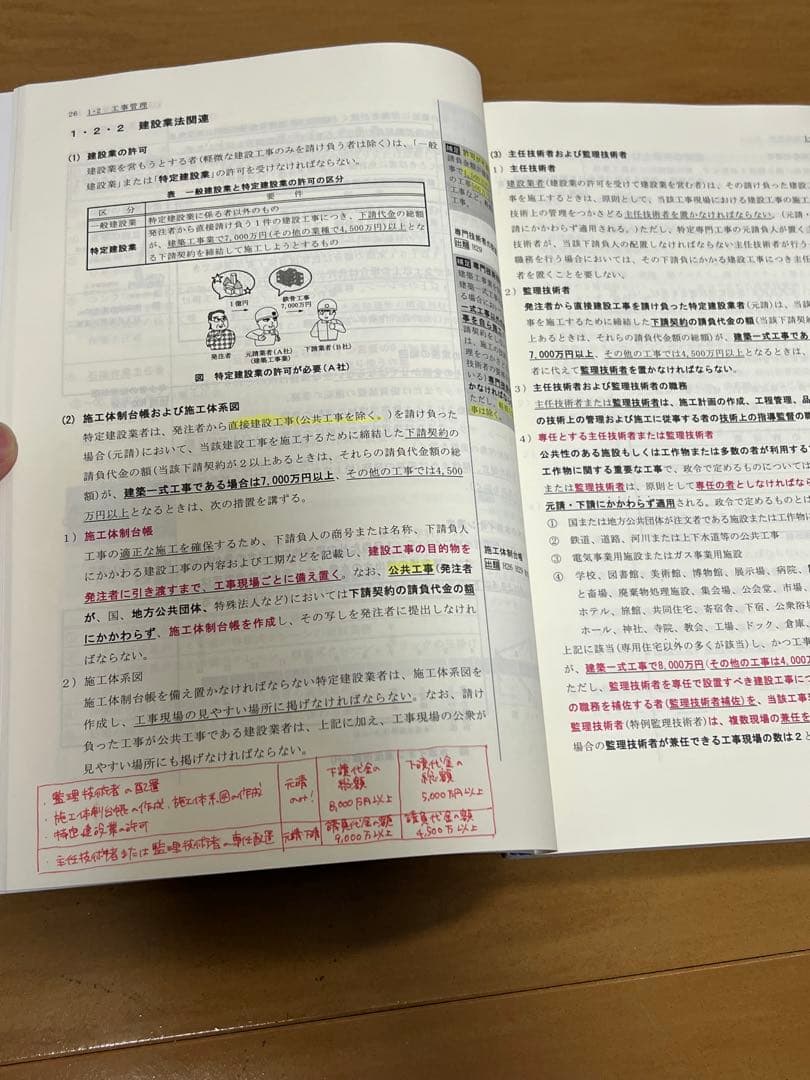 26 1・2 工事管理
1・2・2 建設業法関連
(1) 建設業の許可
建設業を営もうとする者(軽微な建設工事のみを請け負う者は除く)は、「一般
建設業」または「特定建設業」の許可を受けなければならない。
表 一般建設業と特定建設業の許可の区分
区 分 要 件
一般建設業 特定建設業に係る者以外のもの
特定建設業 発注者から直接請け負う1件の建設工事につき、下請代金の総額
が、建築工事業で7,000万円(その他の業種で4,500万円)以上とな
る下請契約を締結して施工しようとするもの
1億円
鉄骨工事
7,000万円
発注者 元請業者(A社) 下請業者(B社)
(建築工事業)
図 特定建設業の許可が必要(A社)
(2) 施工体制台帳および施工体系図
特定建設業者は、発注者から直接建設工事(公共工事を除く。)を請け負った
場合(元請)において、当該建設工事を施工するために締結した下請契約の
請負代金の額(当該下請契約が2以上あるときは、それらの請負代金の総
額)が、建築一式工事である場合は7,000万円以上、その他の工事では4,500
万円以上となるときは、次の措置を講ずる。
1) 施工体制台帳
工事の適正な施工を確保するため、下請負人の商号または名称、下請負人
にかかわる建設工事の内容および工期などを記載し、建設工事の目的物を
発注者に引き渡すまで、工事現場ごとに備え置く。なお、公共工事(発注者
が、国、地方公共団体、特殊法人など)においては下請契約の請負代金の額
にかかわらず、施工体制台帳を作成し、その写しを発注者に提出しなけれ
ばならない。
2) 施工体系図
施工体制台帳を備え置かなければならない特定建設業者は、施工体系図を
作成し、工事現場の見やすい場所に掲げなければならない。なお、請け
負った工事が公共工事である建設業者は、上記に加え、工事現場の公衆が
見やすい場所にも掲げなければならない。
・監理技術者の配置
・施工体制台帳の作成、施工体系図の作成
・特定建設業の許可
元請のみ!
下請代金の総額 8,000万円以上
下請代金の総額 5,000万円以上
・主任技術者または監理技術者の専任配置
元請下請
請負代金の額 9,000万以上
請負代金の額 4,500万以上
補足
専門技術者の
出題 H29
補足
施工体制台帳
出題 H26 H29
(3) 主任技術者および監理技術者
1) 主任技術者
建設業者(建設業の許可を受けて建設業を営む者)は、その請け負った建設
事を施工するときは、原則として、当該工事現場における建設工事の施工の
技術上の管理をつかさどる主任技術者を置かなければならない。(元請
請にかかわらず適用される。)ただし、特定専門工事の元請負人が置く主
技術者が、当該下請負人の配置しなければならない主任技術者が行う
職務を行う場合においては、その下請負にかかる建設工事につき主任
者を置くことを要しない。
2) 監理技術者
発注者から直接建設工事を請け負った特定建設業者(元請)は、当該
事を施工するために締結した下請契約の請負代金の額(当該下請契約
上あるときは、それらの請負代金の総額)が、建築一式工事であ
7,000万円以上、その他の工事では4,500万円以上となるときは、
者に代えて監理技術者を置かなければならない。
3) 主任技術者および監理技術者の職務
主任技術者または監理技術者は、施工計画の作成、工程管理、品
の技術上の管理および施工に従事する者の技術上の指導監督の職
4) 専任とする主任技術者または監理技術者
公共性のある施設もしくは工作物または多数の者が利用する
工作物に関する重要な工事で、政令で定めるものについては
または監理技術者は、原則として専任の者としなければなら
元請・下請にかかわらず適用される。政令で定めるものとは
① 国または地方公共団体が注文者である施設または工作物に
② 鉄道、道路、河川または上下水道等の公共工事
③ 電気事業用施設またはガス事業用施設
④ 学校、図書館、美術館、博物館、展示場、病院、
と畜場、廃棄物処理施設、集会場、公会堂、市場、
ホテル、旅館、共同住宅、寄宿舎、下宿、公衆浴
ホール、神社、寺院、教会、工場、ドック、倉庫、
上記に該当(専用住宅以外の多くが該当)し、かつ工事
が、建築一式工事で8,000万円(その他の工事は4,000万
ただし、監理技術者を専任で設置すべき建設工事につ
の職務を補佐する者(監理技術者補佐)を、当該工事
監理技術者(特例監理技術者)は、複数現場の兼任を
場合の監理技術者が兼任できる工事現場の数は2と